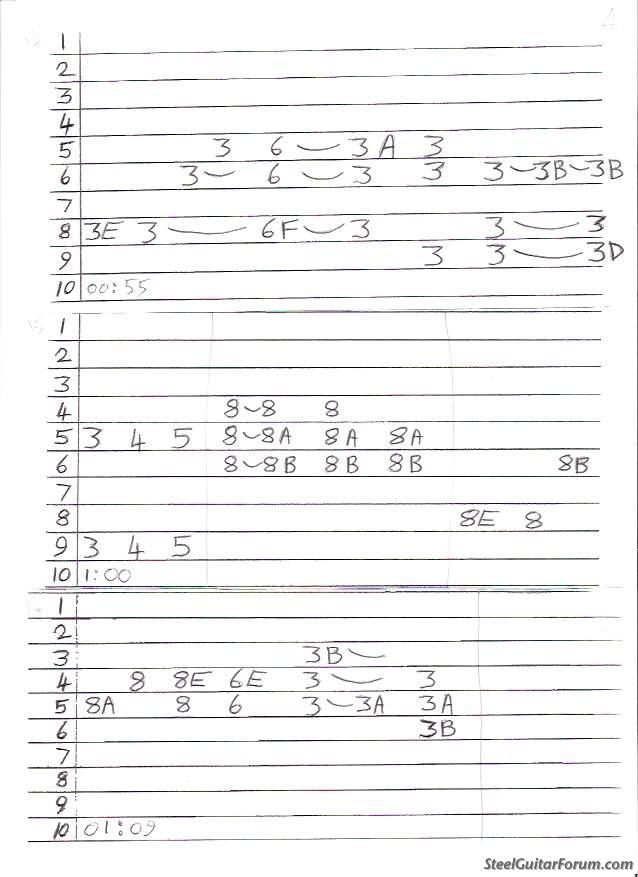 4
1
2
3
4
5 3 6 ⁓ 3A 3
6 3⁓ 6 ⁓ 3 3 3⁓3B⁓3B
7
8 3E 3 ⁓ 6F⁓3 3 ⁓ 3
9 3 3 ⁓ 3D
10 00:55
1
2
3
4 8⁓8 8
5 3 4 5 8⁓8A 8A 8A
6 8⁓8B 8B 8B 8B
7
8 8E 8
9 3 4 5
10 1:00
1
2
3 3B⁓
4 8 8E 6E 3 ⁓ 3
5 8A 8 6 3⁓3A 3A
6 3B
7
8
9
10 01:09
SteelGuitarForum.com